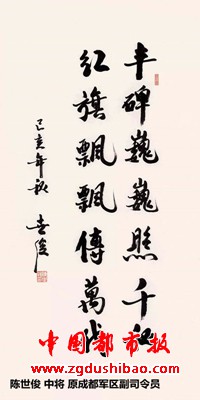 丰碑巍巍照千秋
红旗飘飘傳萬代
己亥年秋
世俊
中国都市报
www.zgdushibao.com
陈世俊 中将 原成都军区副司令员